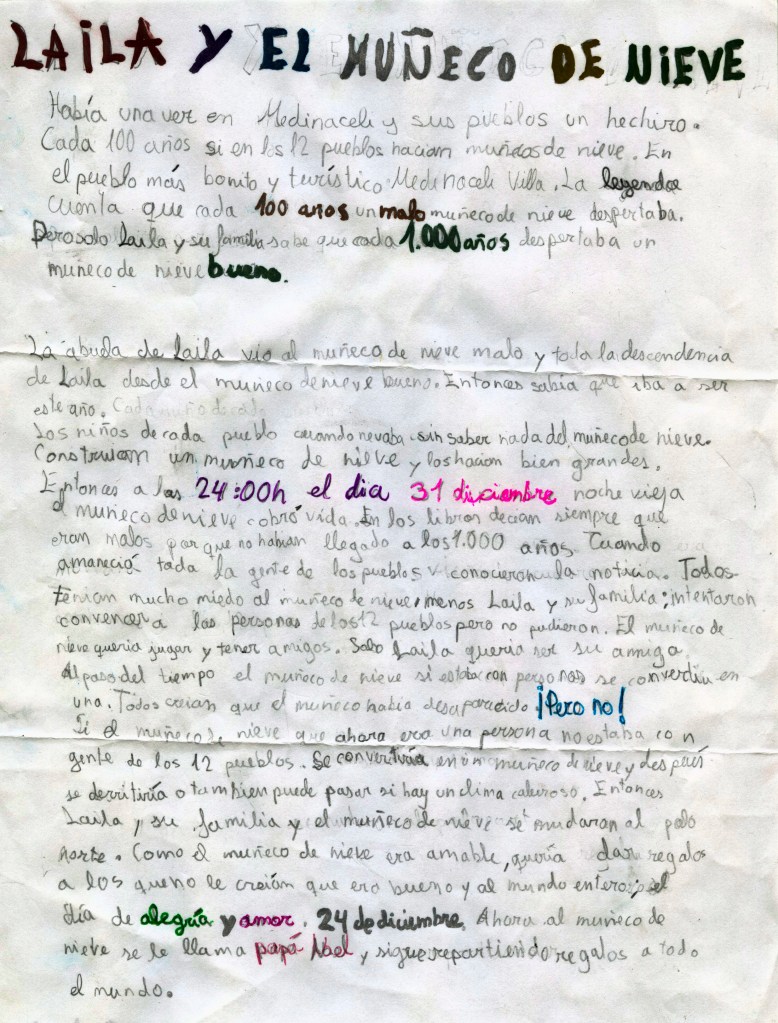 LAILA Y EL MUÑECO DE NIEVE
Había una vez en Medinaceli y sus pueblos un hechizo.
Cada 100 años si en los 12 pueblos hacian muñecos de nieve. En
el pueblo más bonito y turístico Medinaceli Villa. La legenda
cuenta que cada 100 años un malo muñeco de nieve despertaba.
Pero solo Laila y su familia sabe que cada 1.000 años despertaba un
muñeco de nieve bueno.
La abuela de Laila vio al muñeco de nieve malo y toda la descendencia
de Laila desde el muñeco de nieve bueno. Entonces sabia que iba a ser
este año.
Los niños de cada pueblo cuando nevaba sin saber nada del muñeco de nieve.
Construian un muñeco de nieve y los hacian bien grandes.
Entonces a las 24:00h el dia 31 diciembre noche vieja
el muñeco de nieve cobró vida. En los libros decian siempre que
eran malos por que no habian llegado a los 1.000 años. Cuando
amaneció toda la gente de los pueblos conocieron la noticia. Todos
tenian mucho miedo al muñeco de nieve, menos Laila y su familia; intentaron
convencer a las personas de los 12 pueblos pero no pudieron. El muñeco de
nieve queria jugar y tener amigos. Solo Laila queria ser su amiga.
Al paso del tiempo el muñeco de nieve si estaba con personas se convertia en
una. Todos creian que el muñeco habia desaparecido ¡Pero no!
Si el muñeco de nieve que ahora era una persona no estaba con
gente de los 12 pueblos. Se convertiria en un muñeco de nieve y después
se derritiría o tambien puede pasar si hay un clima caluroso. Entonces
Laila y su familia y el muñeco de nieve se mudaran al polo
norte. Como el muñeco de nieve era amable, quería dar regalos
a los que no le creían que era bueno y al mundo entero; el
día de alegría y amor. 24 de diciembre. Ahora al muñeco de
nieve se le llama papá Noel y sigue repartiendo regalos a todo
el mundo.